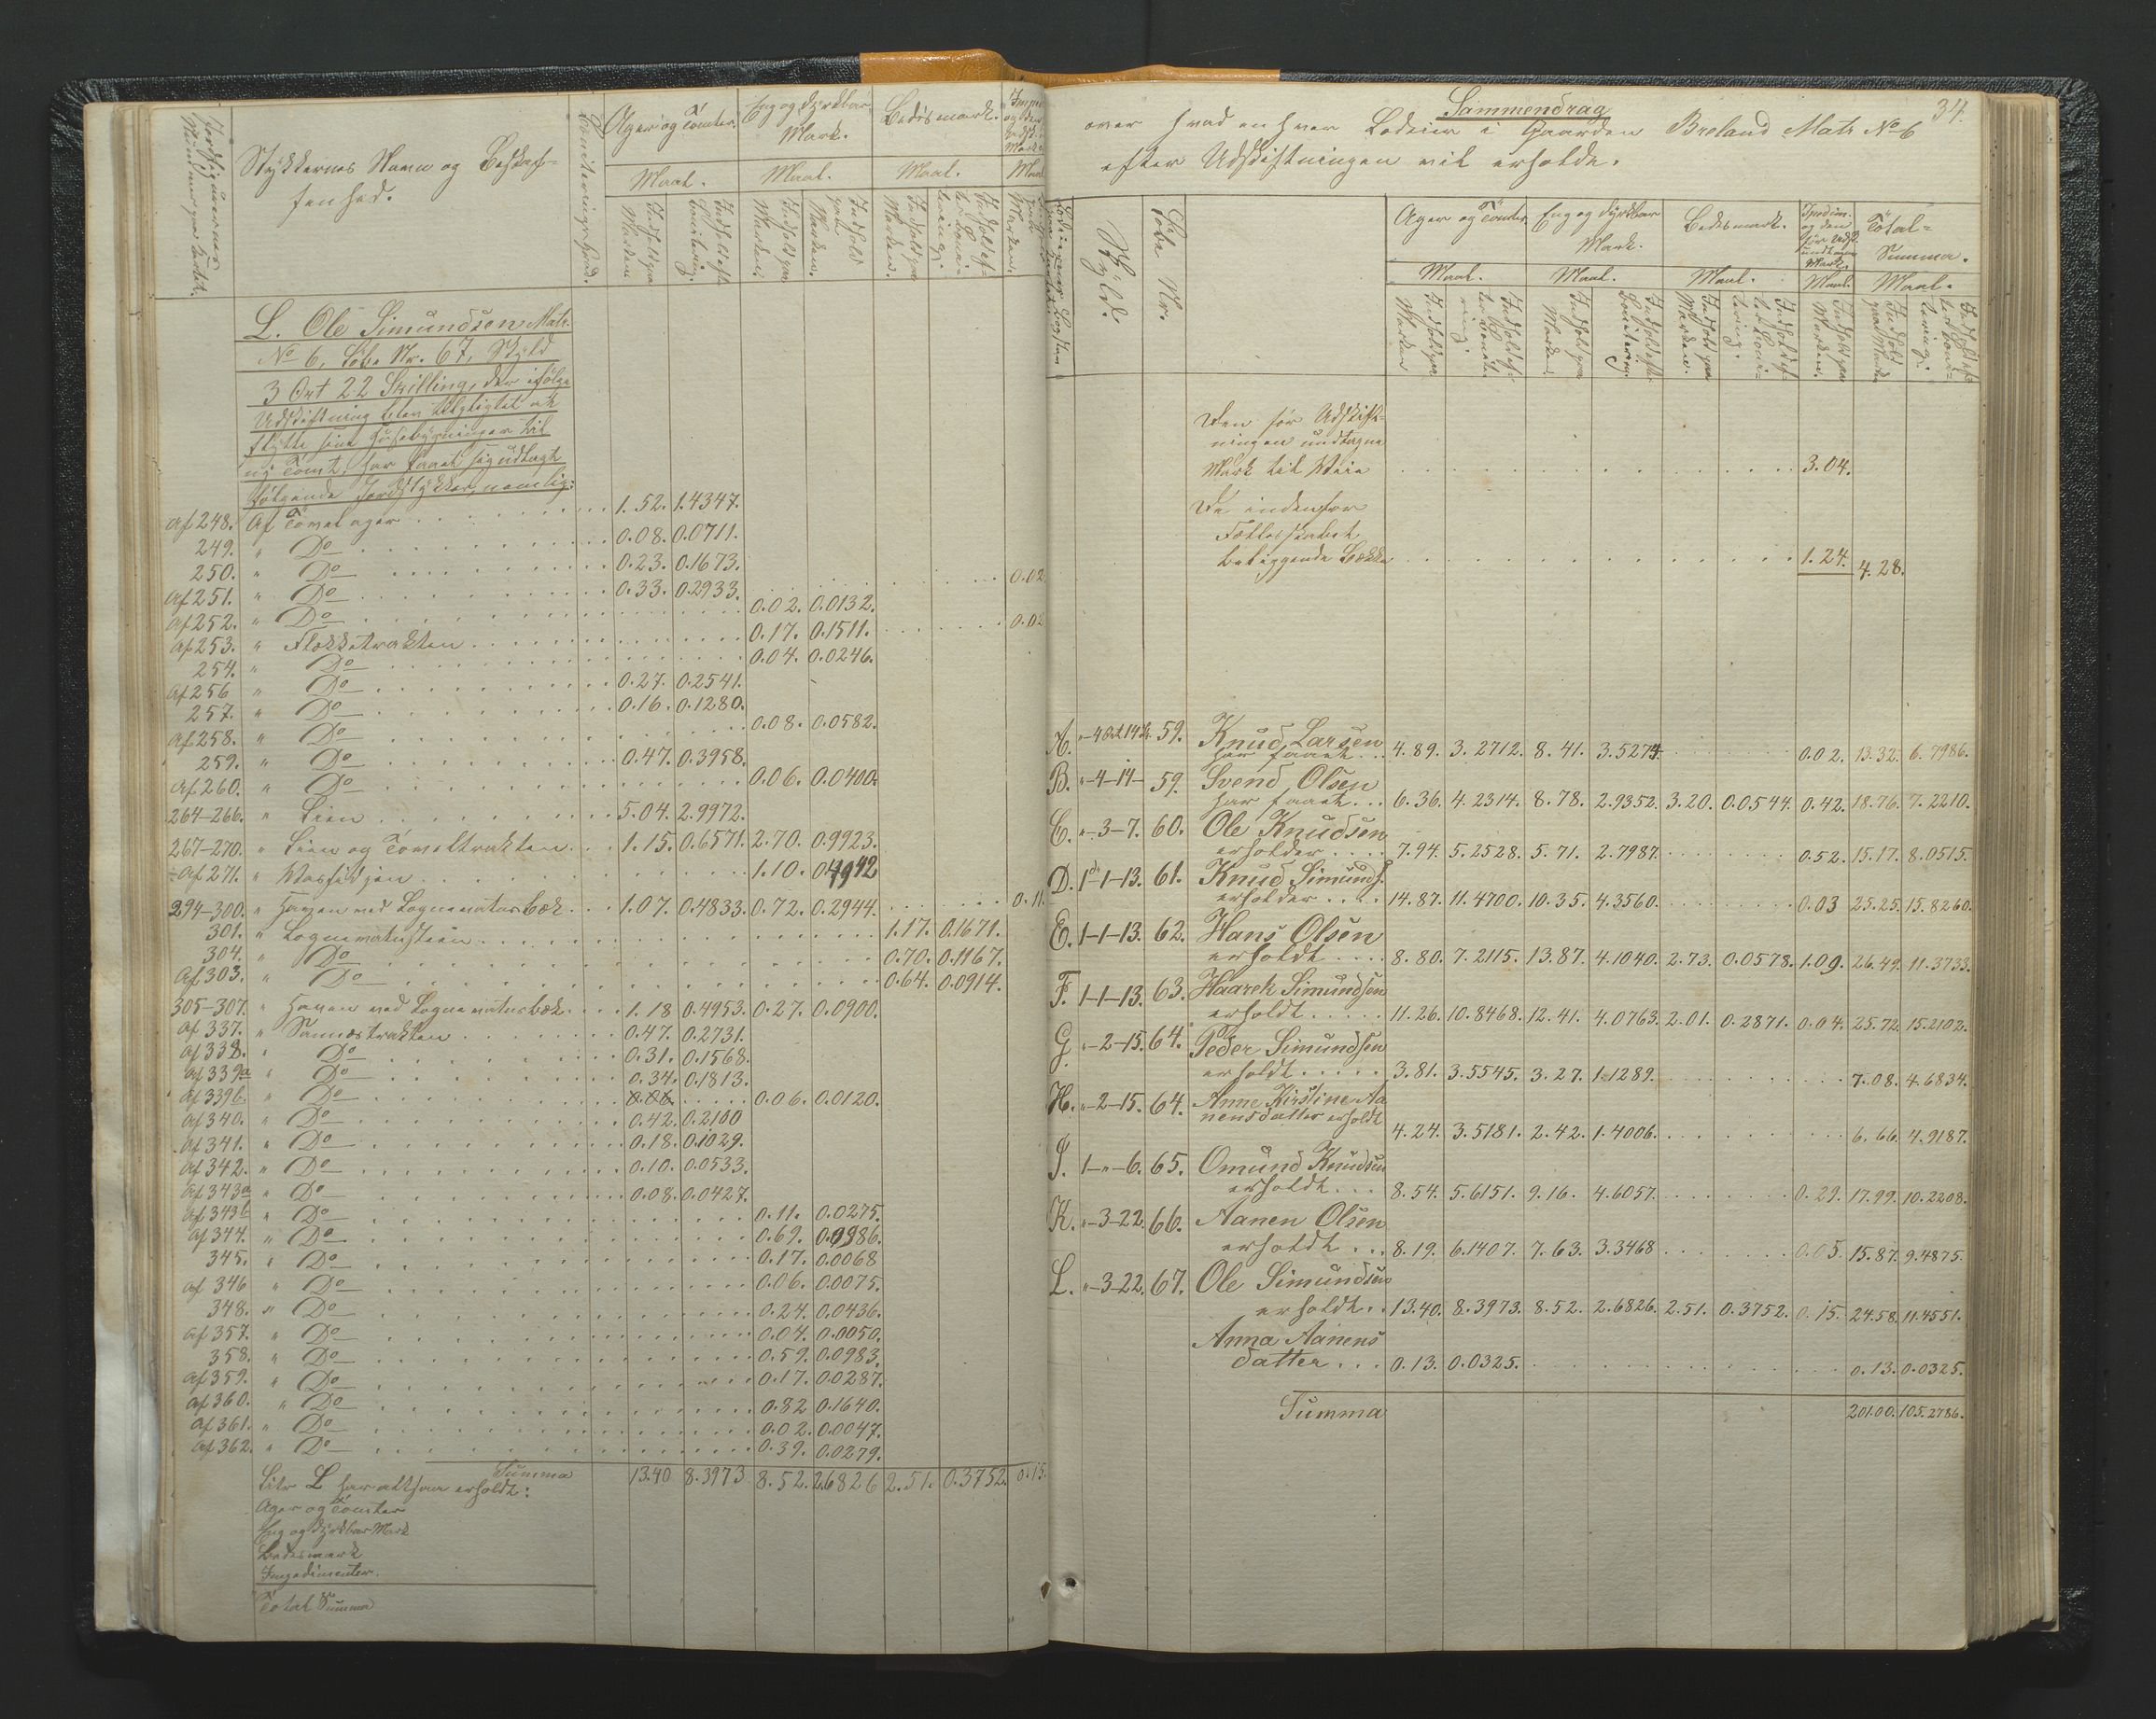 Stykkernes Navn og Beskaf-
fenhed.
Ager og Tomter.
Eng og dyrkbar
Mark.
Bedesmark.
Maal. Maal. Maal. Maal
L. Ole Simundsen Matr.
No 6, Løbe Nr. 67, Skyld
3 Ort 22 Skilling, der ifølge
Udskiftning blev tilpligtet at
flytte sine Huusbygninger til
ny Tomt, har faaet sig udlagt
følgende Jordstykker, nemlig:
Af 248. Af Tomelager 1.52. 1.4347.
249. " Do 0.08. 0.0711.
250. " Do 0.23. 0.1673.
Af 251. " Do 0.33. 0.2933. 0.02
Af 252. " Do 0.02. 0.0132.
Af 253. " Flokketrakten 0.17. 0.1511. 0.02
254. " Do 0.04. 0.0246.
Af 256 " Do 0.27. 0.2541.
257. " Do 0.16. 0.1280.
Af 258. " Do 0.08. 0.0582.
259. " Do 0.47. 0.3958.
Af 260. " Do 0.06. 0.0400.
264-266. " Lien 5.04. 2.9972.
267-270. " Lien og Tomeltrakten 1.15. 0.6571. 2.70. 0.9923.
Af 271. " 1.10. 0.4942
294-300. " Hagen ved Lognevatusbæk 1.07. 0.4833. 0.72. 0.2944. 0.11.
301. " Lognevatusteien 1.17. 0.1671.
304. " Do 0.70. 0.1167.
Af 303. " Do 0.64. 0.0914.
305-307. " Haven ved Lognevatusbæk 1.18 0.4953. 0.27. 0.0900.
Af 337. " Sannestrakten 0.47. 0.2731.
Af 338. " Do 0.31. 0.1568.
Af 339a " Do 0.34. 0.1813.
Af 339b. " Do 0.06. 0.06. 0.0120.
Af 340. " Do 0.42. 0.2100
Af 341. " Do 0.18. 0.1029.
Af 342. " Do 0.10. 0.0533.
Af 343a " Do 0.08. 0.0427.
Af 343b " Do 0.11. 0.0275.
Af 344. " Do 0.69. 0.0986.
345. " Do 0.17. 0.0068
Af 346 " Do 0.06. 0.0075.
348. " Do 0.24. 0.0436.
Af 357. " Do 0.04. 0.0050.
358. " Do 0.59. 0.0983.
Af 359. " Do 0.17. 0.0287.
Af 360. " Do 0.82 0.1640.
Af 361. " Do 0.02. 0.0047.
Af 362. " Do 0.39. 0.0279.
Summa 13.40 8.3973 8.52. 2.6826 2.51. 0.3752. 0.15.
Litr L har altsaa erholdt:
Ager og Tomter
Eng og dyrkbar Mark
Bedesmark
Impedimenter.
Total Summa
34.
Sammendrag
over hvad enhver Lodeier i Gaarden Breland Matr No 6
efter Udskiftningen vil erholde.
Skyld. Løbe Nr.
Ager og Tomter. Eng og dyrkbar
Mark. Bedesmark.
Total-
Summa.
Maal. Maal. Maal. Maal. Maal.
Den for Udskift-
ningen undtagne
Mark til Veie 3.04.
De indenfor
Fælledskabet
beliggende Bække 1.24. 4.28.
A. 59. Knud Larsen
har faaet 4.89. 3.2712. 8.41. 3.5274. 0.02. 13.32. 6.7986.
B. "-4-14- 59. Svend Olsen
har faaet 6.36. 4.2314. 8.78. 2.9352. 3.20. 0.0544. 0.42. 18.76. 7.2210.
C. "-3-7. 60. Ole Knudsen
erholder 7.94. 5.2528. 5.71. 2.7987. 0.52. 15.17. 8.0515.
D. 1d-1-13. 61. Knud Simunds.
erholder 14.87. 11.4700. 10.35. 4.3560. 0.03 25.25. 15.8260.
E. 1-1-13. 62. Hans Olsen
erholdt 8.80. 7.2115. 13.87. 4.1040. 2.73. 0.0578. 1.09. 26.49. 11.3733.
F. 1-1-13. 63. Haarek Simundsen
erholdt 11.26. 10.8468. 12.41. 4.0763. 2.01. 0.2871. 0.04. 25.72. 15.2102.
G. "-2-15. 64. Peder Simundsen
erholdt 3.81. 3.5545. 3.27. 1.1289. 7.08. 4.6834.
H. "-2-15. 64. Anne Kirstine Aa
nensdatter erholdt 4.24. 3.5181. 2.42. 1.4006. 6.66. 4.9187.
I. 1-"-6. 65. Omund Knudsen
erholdt 8.54. 5.6151. 9.16. 4.6057. 0.29. 17.99. 10.2208.
K. "-3-22. 66. Aanen Olsen
erholdt 8.19. 6.1407. 7.63. 3.3468 0.05. 15.87. 9.4875.
L. "-3-22. 67. Ole Simundsen
erholdt 13.40. 8.3973. 8.52. 2.6826. 2.51. 0.3752. 0.15. 24.58. 11.4551.
Anna Aanens
datter 0.13. 0.0325. 0.13. 0.0325.
Summa 201.00. 105.2786.